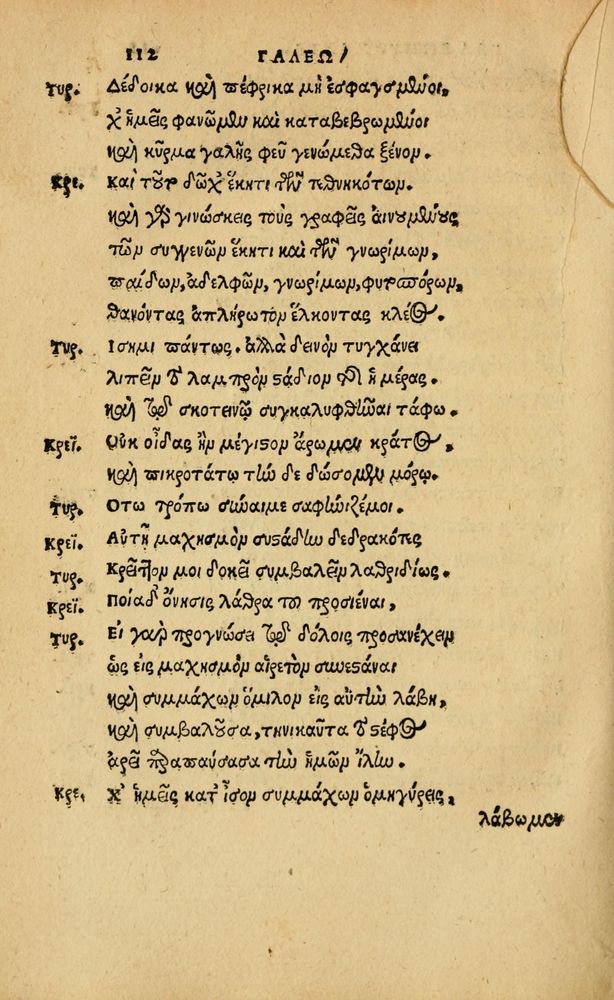 112 ΓΑΛΕΩ/
Τυρ. Δέδοικα καὶ πέφρικα μὴ ἐσφαγσμένοι,
χ' ἡμεῖς φανῶμεν καὶ καταβεβρωμένοι
καὶ κῦρμα γαλῆς φεῦ γενώμεθα ξένον.
Κρε. Καὶ τοῦν δῶχ' ἕκητι τῶν τεθνηκότων.
καὶ γὰρ γινώσκεις τοὺς γραφεῖς αἰνουμένους
τῶν συγγενῶν ἕκητι καὶ τῶν γνωρίμων,
παίδων, ἀδελφῶν, γνωρίμων, φυτοσπόρων,
θανόντας ἀπλήρωτον ἕλκοντας κλέος.
Τυρ. Ισημι πάντως. ἀλλὰ δεινὸν τυγχάνει
λιπεῖν τὸ λαμπρὸν στάδιον τῆς ἡμέρας.
καὶ τῷ σκοτεινῷ συγκαλυφθῆναι τάφω.
Κρεΐ. Οὐκ οἶδας ἣν μέγιστον ἄρωμεν κράτος,
καὶ πικροτάτῳ τήνδε δώσομεν μόρῳ.
Τυρ. Οτω τρόπω σύναιμε σαφηνιζέμοι.
Κρεΐ. Αὐτῇ μαχησμὸν συστάδην δεδρακότες
Τυρ. Κρεῖττον μοι δοκεῖ συμβαλεῖν λαθριδίως.
Κρεΐ. Ποία δ' ὄνησις λάθρα του προσιέναι,
Τυρ. Εἰ γὰρ προγνώσει τοῖς δόλοις προσανέχειν
ὡς εἰς μαχησμὸν αἱρετὸν συνεστάναι
καὶ συμμάχων ὅμιλον εἰς αὑτὴν λάβῃ,
καὶ συμβαλοῦσα, τηνικαῦτα τὸ στέφος
ἀρεῖ τραπαύσασα τὴν ἡμῶν ἴλην.
Κρε. Χ' ἡμεῖς κατ' ἶσον συμμάχων ὁμηγύρεις,
λάβωμεν